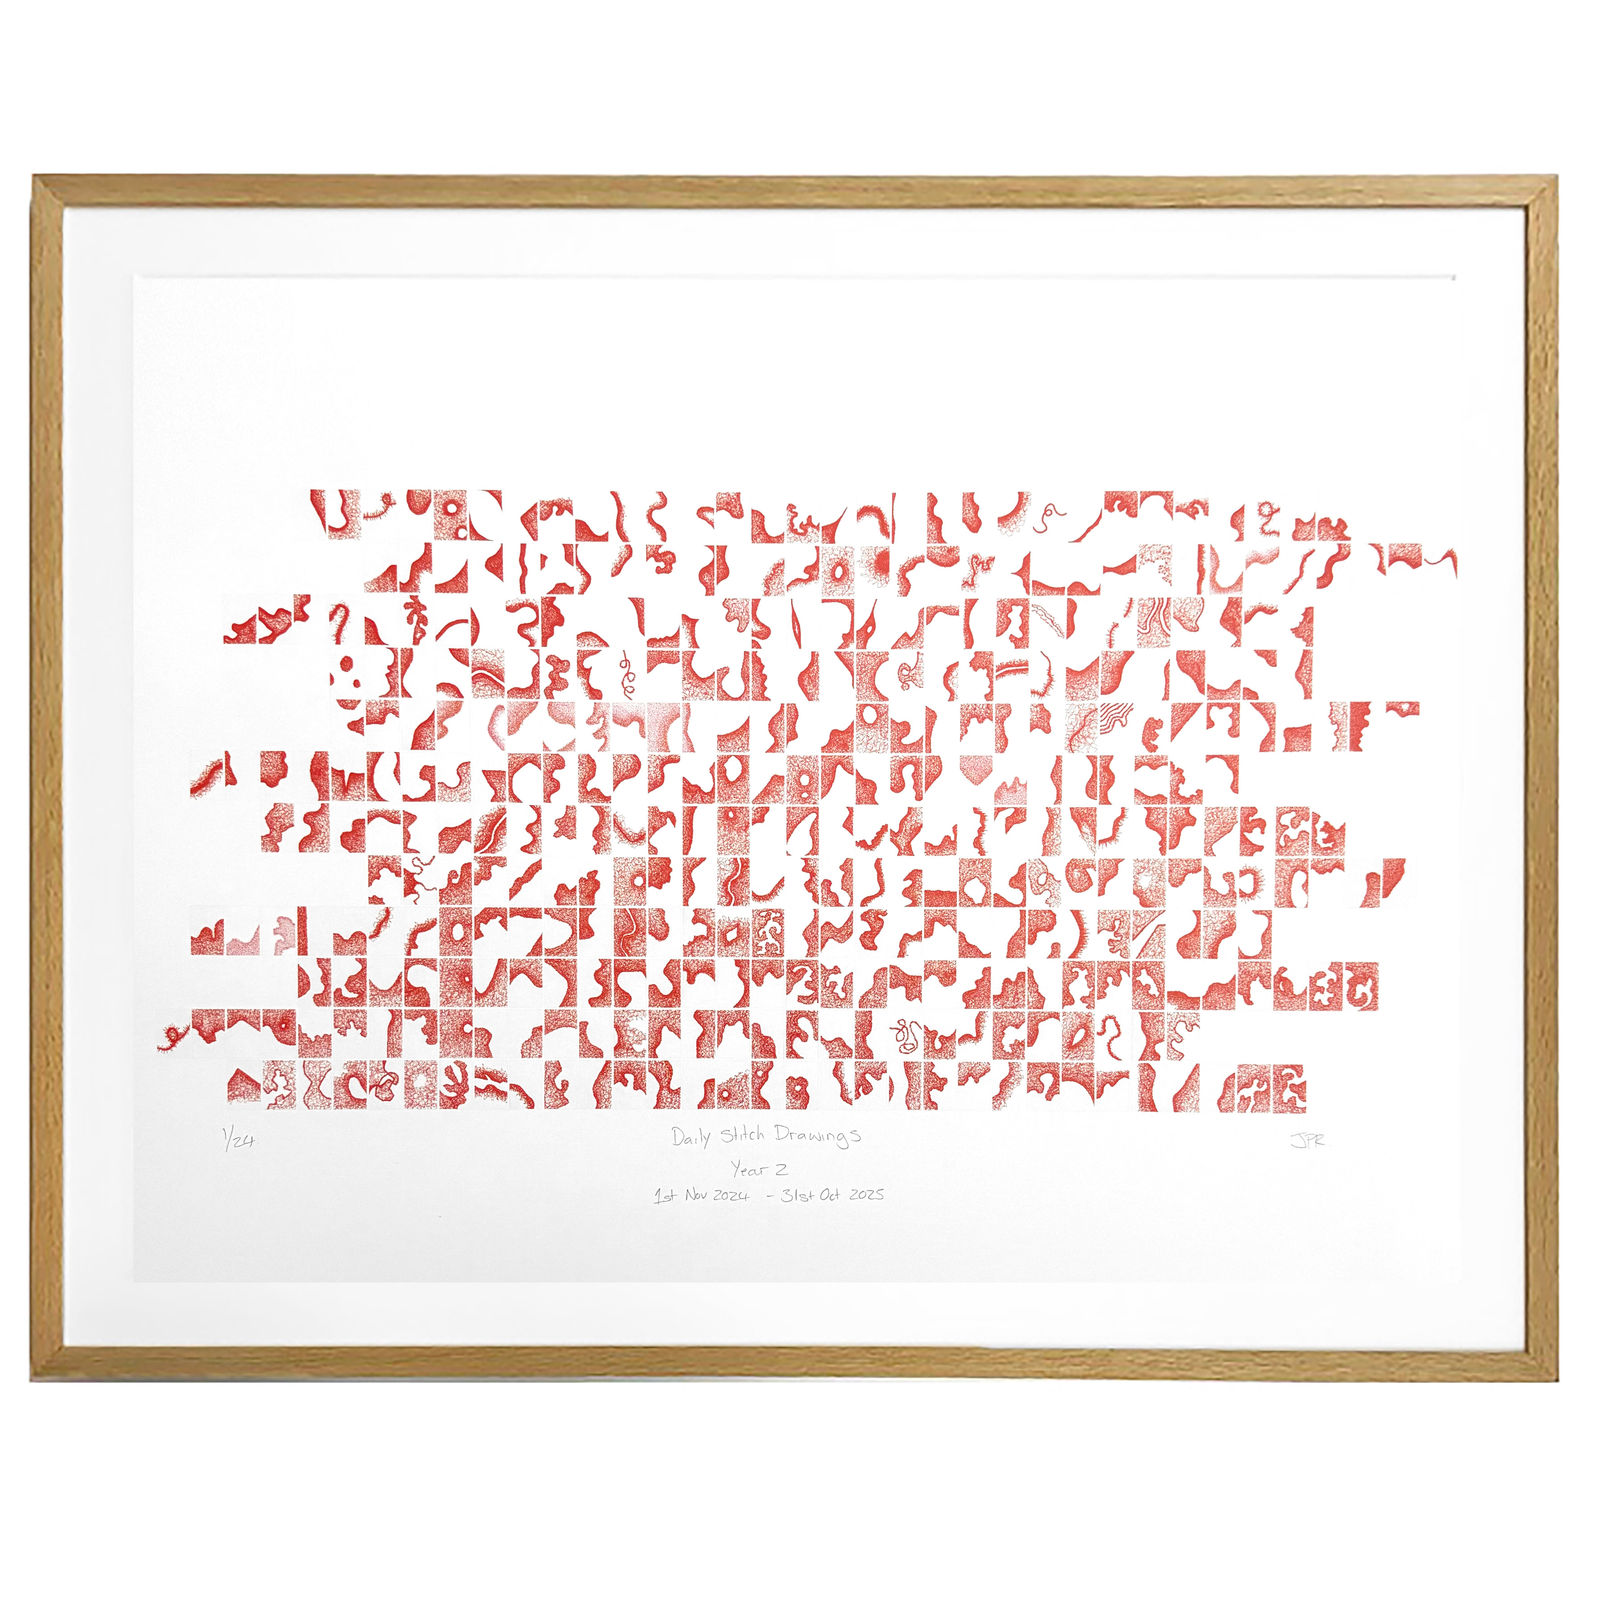 1/24
Daily Stitch Drawings
JPR
Year 2
1st Nov 2024 - 31st Oct 2025